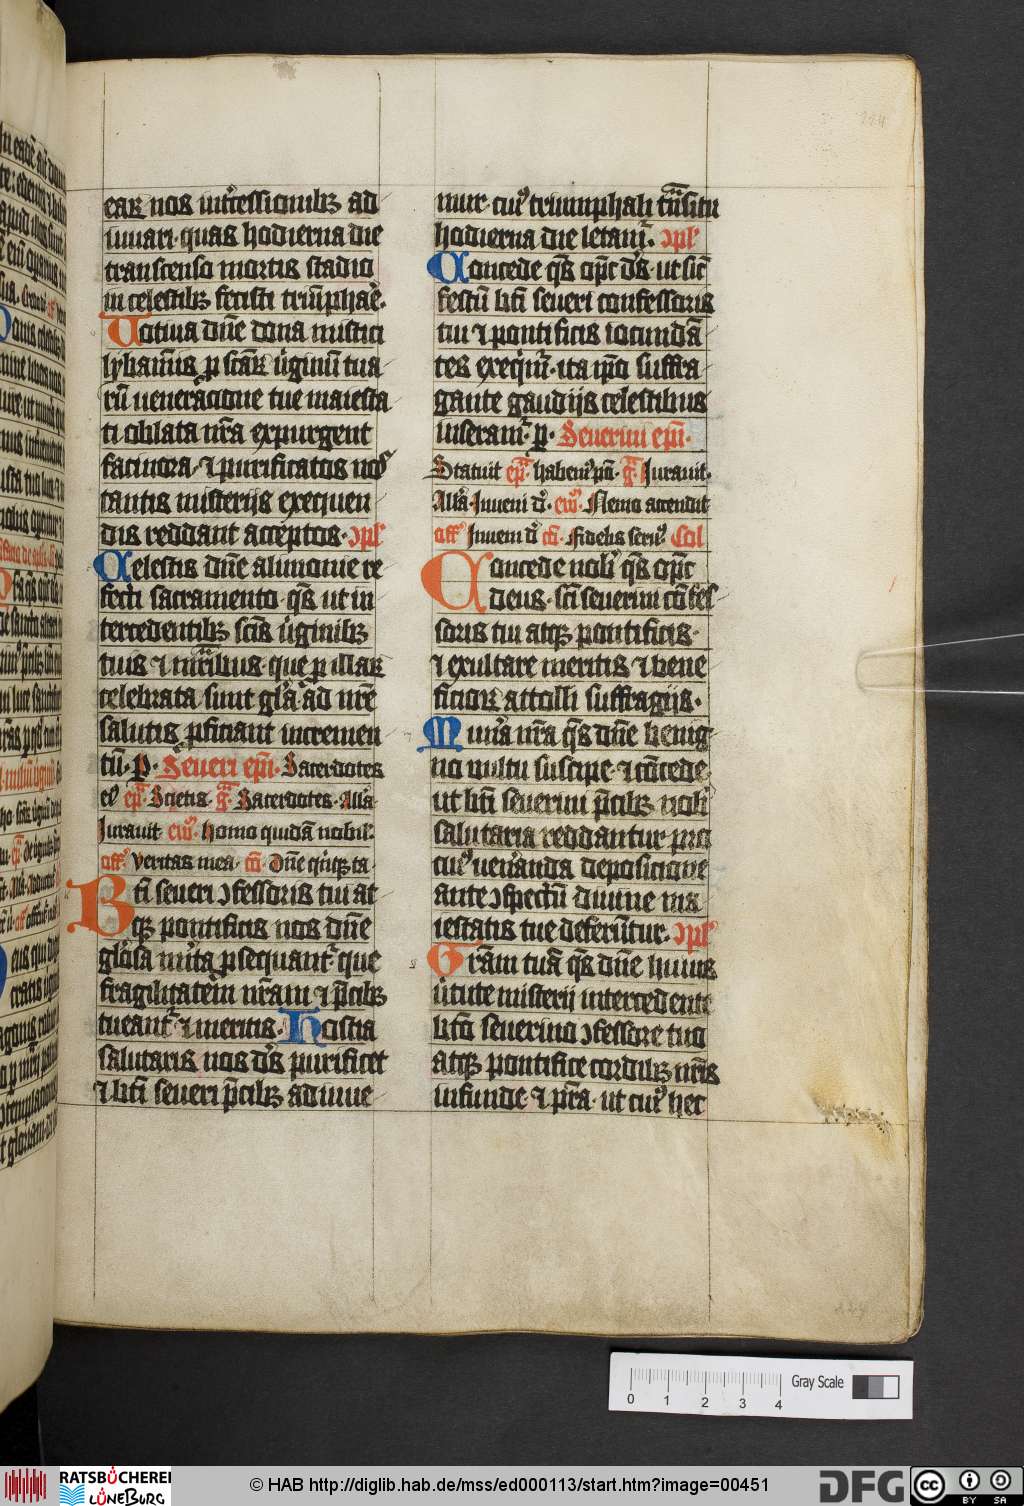 ear nos int᷑cessionib; ad
iuuari · quas hodierna die
transcenso mortis stadio
in celestib; fecisti triu̅phare̅ ·
Uotiua dn̅e dona mistici
lybamin̅s p sctar̅ v᷑ginu̅ tua
ru̅ uenerac̅ione tue maiesta
ti oblata nr̅a expurgent
facinora · ⁊ purificatos nos
tantis misterijs exequen
dis reddant acceptos · ↄpl᷑
Celestis dn̅e alimonie re
fecti sacramento · q̅s ut in
tercedentib; sci̅s v᷑ginib;
tuis ⁊ mr̅ibus · que p illar
celebrata sunt gl̅a · ad nr̅e
salutis ꝓficiant incremen
tu̅ · P · Seueri epi̅ · Sacerdotes
ei᷑ ep̅ · Scietis · g̅ · Sacerdotes · All̅a ·
Jurauit eu᷑ · Homo quida̅ nobil᷑ ·
off᷑ Veritas mea · co̅ · Dn̅e qui̅q; ta ·
Bti̅ seueri ↄfessoris tui at
q; pontificis nos dn̅e
glo̅sa mi̅ta ꝓsequant᷑ que
fragilitate̅m nr̅am ⁊ p̅cib;
tueant᷑ ⁊ meritis · Hostia
salutaris nos ds̅ purificet
⁊ bti̅ seueri p̅cib; adiuue
mur · cui᷑ triumphali tn̅situ
hodierna die letam᷑ · ↄpl᷑
Concede q̅s op̅c ds̅ · ut sic̅
festu̅ bti̅ seueri confessoris
tui ⁊ pontificis iocunda̅
tes exeq̅im᷑ · ita ip̅o suffra
gante gaudijs celestibus
inseram᷑ · p · Seuerini epi̅ ·
Statuit ep̅ · habem᷑ po̅ · g̅ · Jurauit ·
All̅a · Jnueni d᷑ · eu᷑ · Nemo accendit
off᷑ Jnueni d᷑ co̅ · Fidelis seru᷑ Col
Concede nob᷑ q̅s op̅c
deus · sci̅ seuerini co̅fes
soris tui atq; pontificis ·
⁊ exultare meritis ⁊ bene
ficior attolli suffragijs ·
Mun᷑a nr̅a q̅s dn̅e benig
no vultu suscipe · ⁊ co̅cede
ut bti̅ seuerini p̅cib; nob᷑
salutaria reddantur pro
cui᷑ uen᷑anda deposicione
ante ↄspectu̅ diuine ma
iestatis tue deferu̅tur · ↄpl᷑
Gra̅m tua̅ q̅s dn̅e huius
v᷑tute misterij intercedente
bto̅ seuerino ↄfessore tuo
atq; pontifice cordib; nr̅is
infunde · ⁊ pr̅a · ut cui᷑ hec
Gray Scale
0 1 2 3 4
RATSBÜCHEREI
LÜNEBURG
© HAB http://diglib.hab.de/mss/ed000113/start.htm?image=00451
DFG
cc BY SA